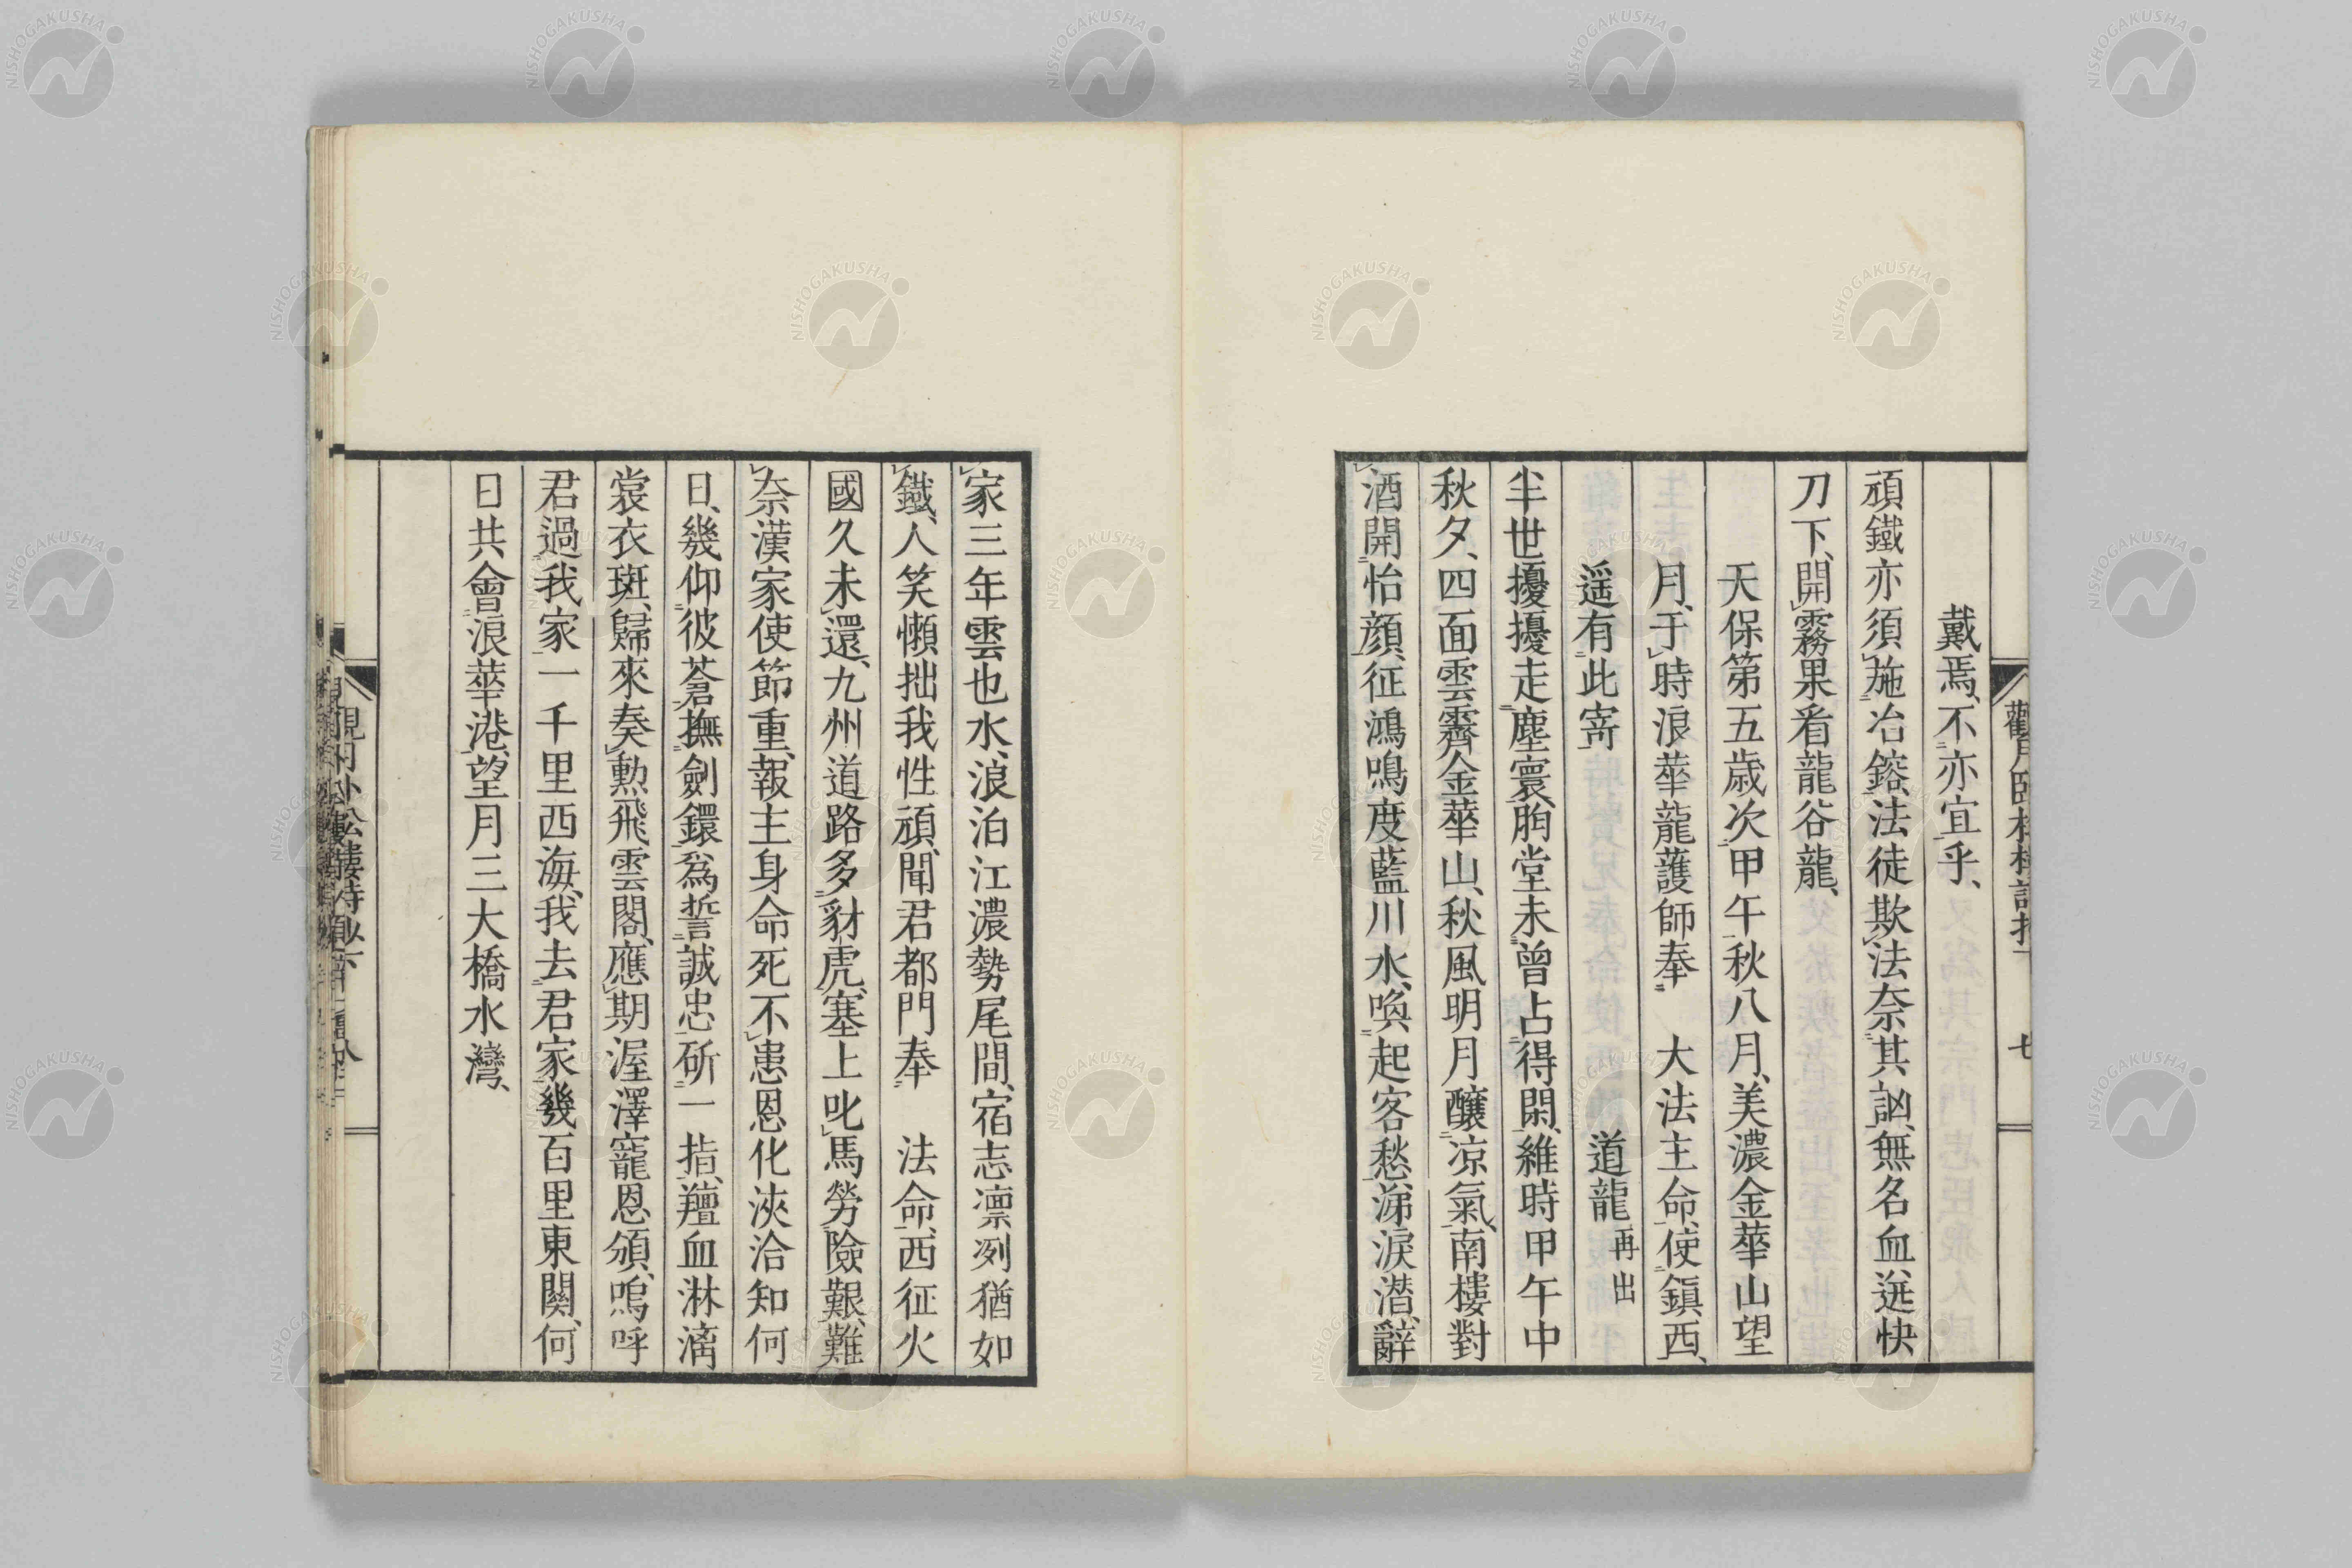 戴焉、不亦宜乎、
頑鐵亦須施冶鎔、法徒欺法奈其訩、無名血迸快
刀下、開霧果看龍谷龍、
天保第五歳次甲午秋八月、美濃金華山望
月、于時浪華龍護師奉　大法主命、使鎮西、
遥有此寄　道龍再出
半世擾擾走塵寰、胸堂未曾占得閑、維時甲午中
秋夕、四面雲霽金華山、秋風明月釀凉氣、南樓對
酒開怡顔、征鴻鳴度藍川水、喚起客愁涕淚潸、辭
七
家三年雲也水、浪泊江濃勢尾間、宿志凛冽猶如
鐵、人笑懶拙我性頑、聞君都門奉　法命、西征火
國久未還、九州道路多豺虎、塞上叱馬勞險艱、難
奈漢家使節重、報主身命死不患、恩化浹洽知何
日、幾仰彼蒼撫劍鐶、爲誓誠忠斫一指、羶血淋漓
裳衣斑、歸來奏勲飛雲閣、應期渥澤寵恩頒、嗚呼
君過我家一千里西海、我去君家幾百里東關、何
日共會浪華港、望月三大橋水灣、
NISHOGAKUSHA